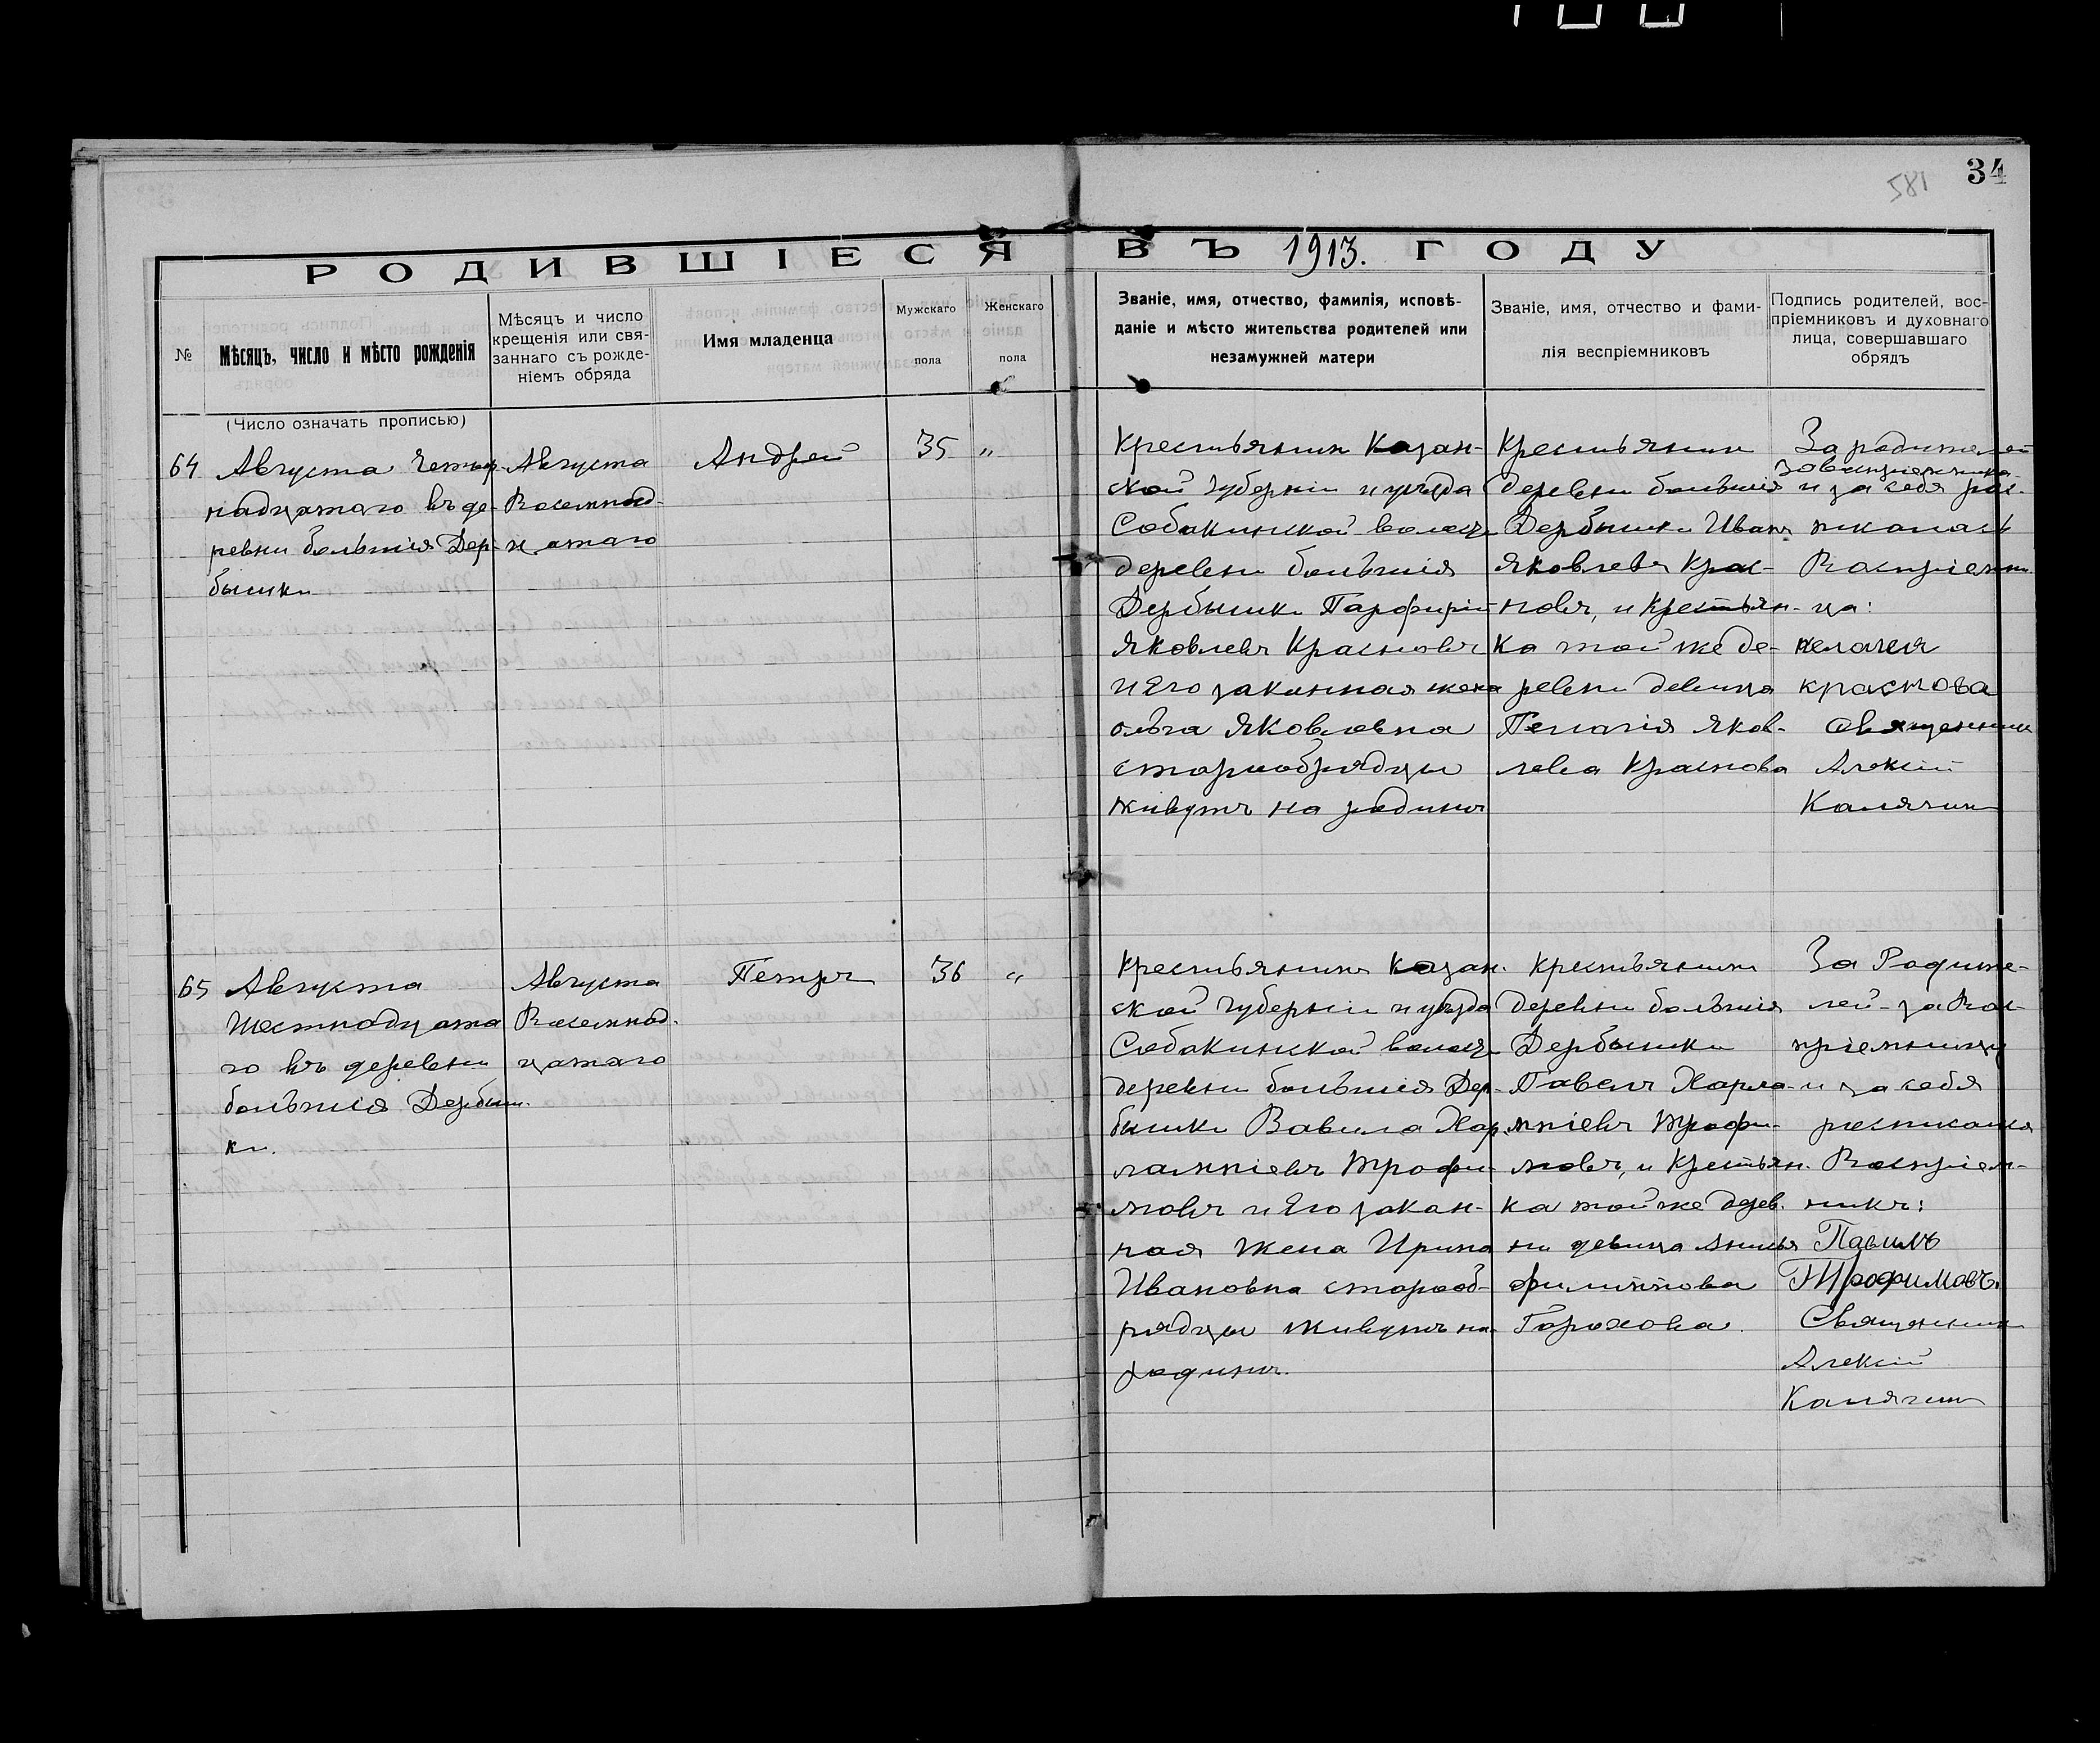 34
581
РОДИВШІЕСЯ ВЪ 1913. ГОДУ
№
Мѣсяцъ, число и мѣсто рожденія
Мѣсяцъ и число
крещенія или свя-
заннаго съ рожде-
ніемъ обряда
Имя младенца
Мужскаго
пола
Женскаго
пола
Званіе, имя, отчество, фамилія, исповѣ-
даніе и мѣсто жительства родителей или
незамужней матери
Званіе, имя, отчество и фами-
лія веспріемниковъ
Подпись родителей, вос-
пріемниковъ и духовнаго
лица, совершавшаго
обрядъ
(Число означать прописью)
64
Августа четыр-
надцатаго въ де-
ревни большія Дер-
бышки
Августа
Восемнад-
цатаго
Андрей
35
„
Крестьянин Казан-
ской губерніи и уѣзда
Собакинской волос
деревни большія
Дербышки Парфирій
Яковлевъ Красновъ
и Его законная жена
ольга Яковлевна
старообрядцы
живутъ на родинѣ
Крестьянин
деревни большія
Дербышки Иванъ
Яковлевъ Крас-
новъ, и Крестьян-
ка той же де-
ревни девица
Пелагія Яков-
лева Краснова
За родителей
за воспріемника
и за себя рос-
писалась
Воспріемни
ца:
пелагея
краснова
Священник
Алексій
Калягин
65
Августа
Шестнадцата
го въ деревни
большія Дербыш-
ки.
Августа
Восемнад-
цатаго
Петръ
36
„
Крестьянинъ Казан-
ской губерніи и уѣзда
Собакинской волос
деревни большія Дер-
бышки Вавила Хар
лампіевъ Трофи-
мовъ и Его закон-
ная жена Ирина
Ивановна старооб-
рядцы живутъ на
родинѣ.
Крестьянин
деревни большія
Дербышки
Павелъ Харла-
мпіевъ Трофи-
мовъ, и Крестьян-
ка той же дерев-
ни девица
филиппова
Горохова.
За Родите-
лей - за Вос-
пріемницу
и за себя
росписался
Воспріем-
никъ:
Павилъ
Трофимовъ.
Священник
Алексій
Калягин